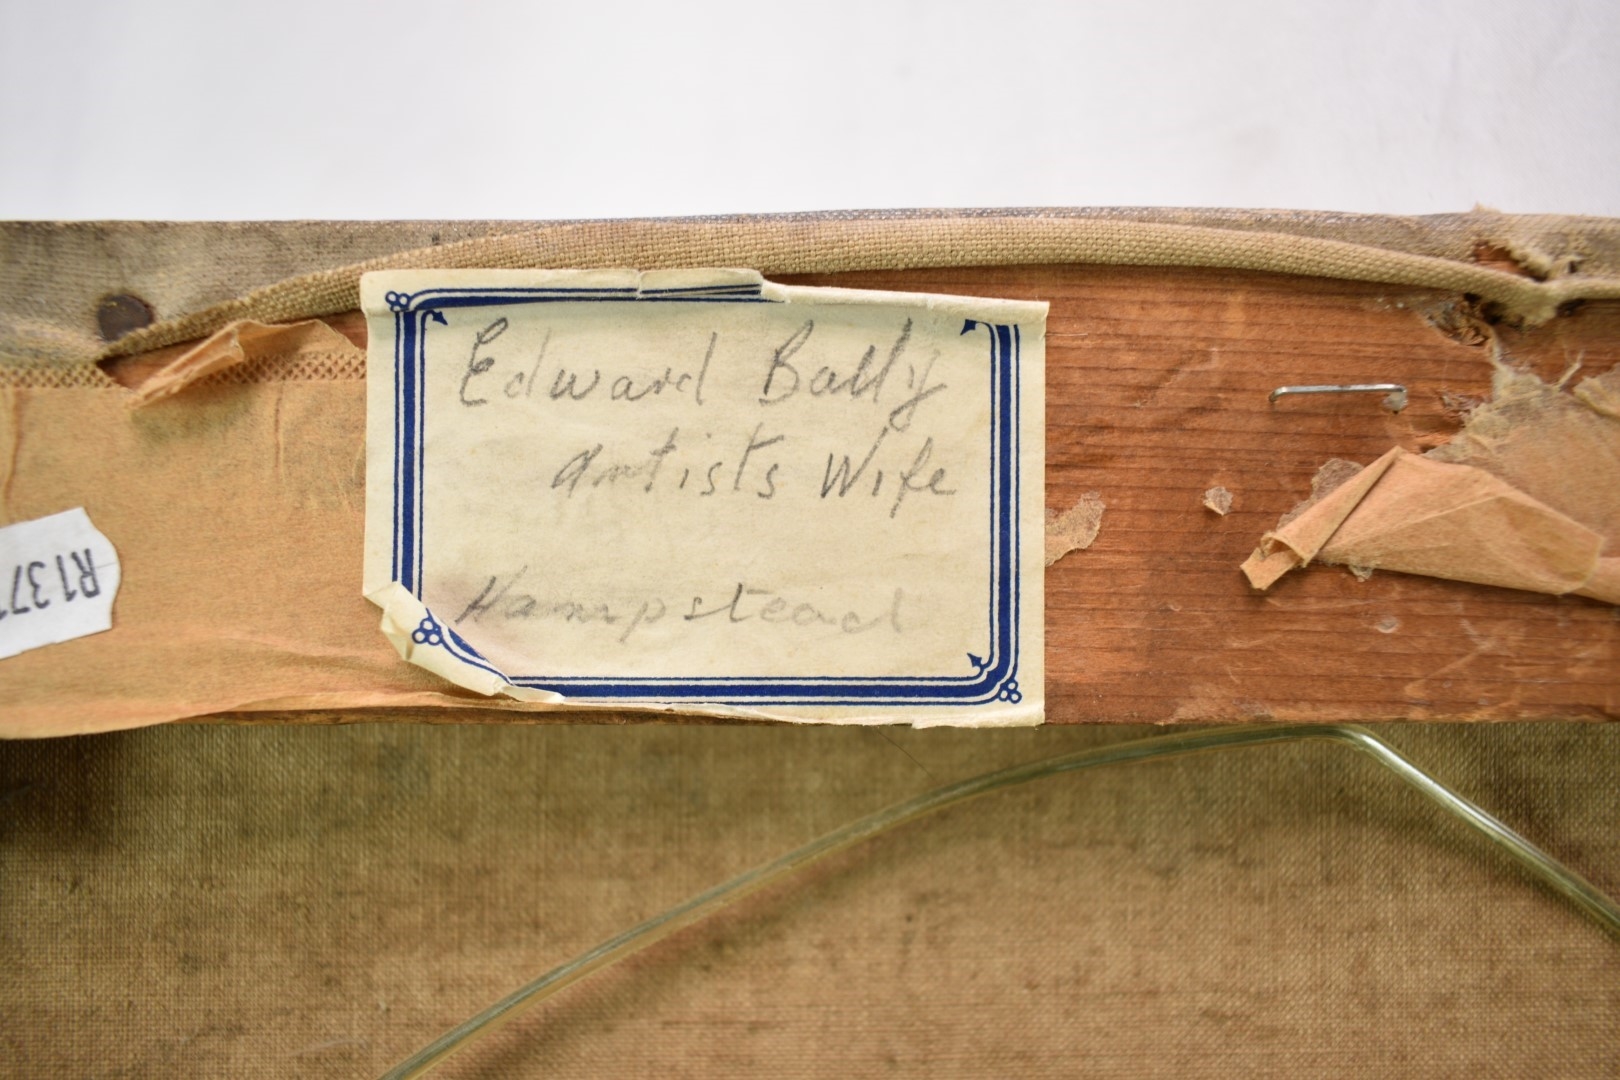 Edward Bally
Artists Wife
Hampstead
R137